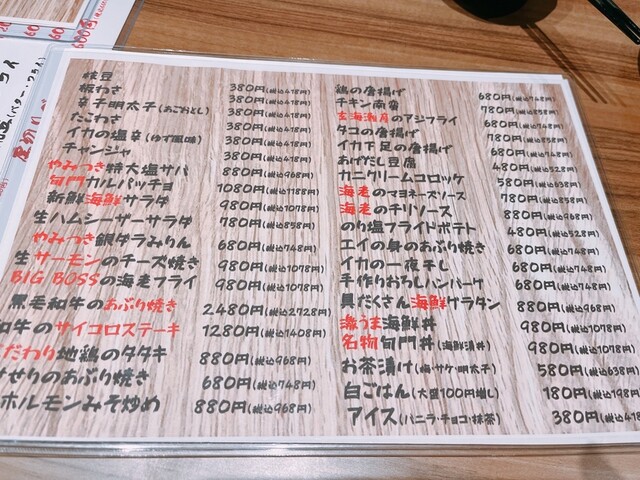 枝豆 380円(税込418円)
板わさ 380円(税込418円)
辛子明太子(あごおとし) 380円(税込418円)
たこわさ 380円(税込418円)
イカの塩辛(ゆず風味) 380円(税込418円)
チャンジャ 380円(税込418円)
やみつき特大塩サバ 880円(税込968円)
旬門カルパッチョ 1080円(税込1188円)
新鮮海鮮サラダ 980円(税込1078円)
生ハムシーザーサラダ 780円(税込858円)
やみつき銀ダラみりん 680円(税込748円)
生サーモンのチーズ焼き 980円(税込1078円)
BIG BOSSの海老フライ 980円(税込1078円)
黒毛和牛のあぶり焼き 2480円(税込2728円)
和牛のサイコロステーキ 1280円(税込1408円)
だわり地鶏のタタキ 880円(税込968円)
せりのあぶり焼き 680円(税込748円)
ホルモンみそ炒め 880円(税込968円)
鶏の唐揚げ 680円(税込748円)
チキン南蛮 780円(税込858円)
玄海灘産のアジフライ 680円(税込748円)
タコの唐揚げ 780円(税込858円)
イカ下足の唐揚げ 680円(税込748円)
あげだし豆腐 480円(税込528円)
カニクリームコロッケ 580円(税込638円)
海老のマヨネーズソース 780円(税込858円)
海老のチリソース 880円(税込968円)
のり塩フライドポテト 480円(税込528円)
エイの身のあぶり焼き 680円(税込748円)
イカの一夜干し 680円(税込748円)
手作りおろしハンバーグ 680円(税込748円)
具だくさん海鮮グラタン 880円(税込968円)
激うま海鮮丼 980円(税込1078円)
名物旬門丼(海鮮漬丼) 980円(税込1078円)
お茶漬け(梅・サケ・明太子) 580円(税込638円)
白ごはん(大盛100円増し) 180円(税込198円)
アイス(バニラ・チョコ・抹茶) 380円(税込418